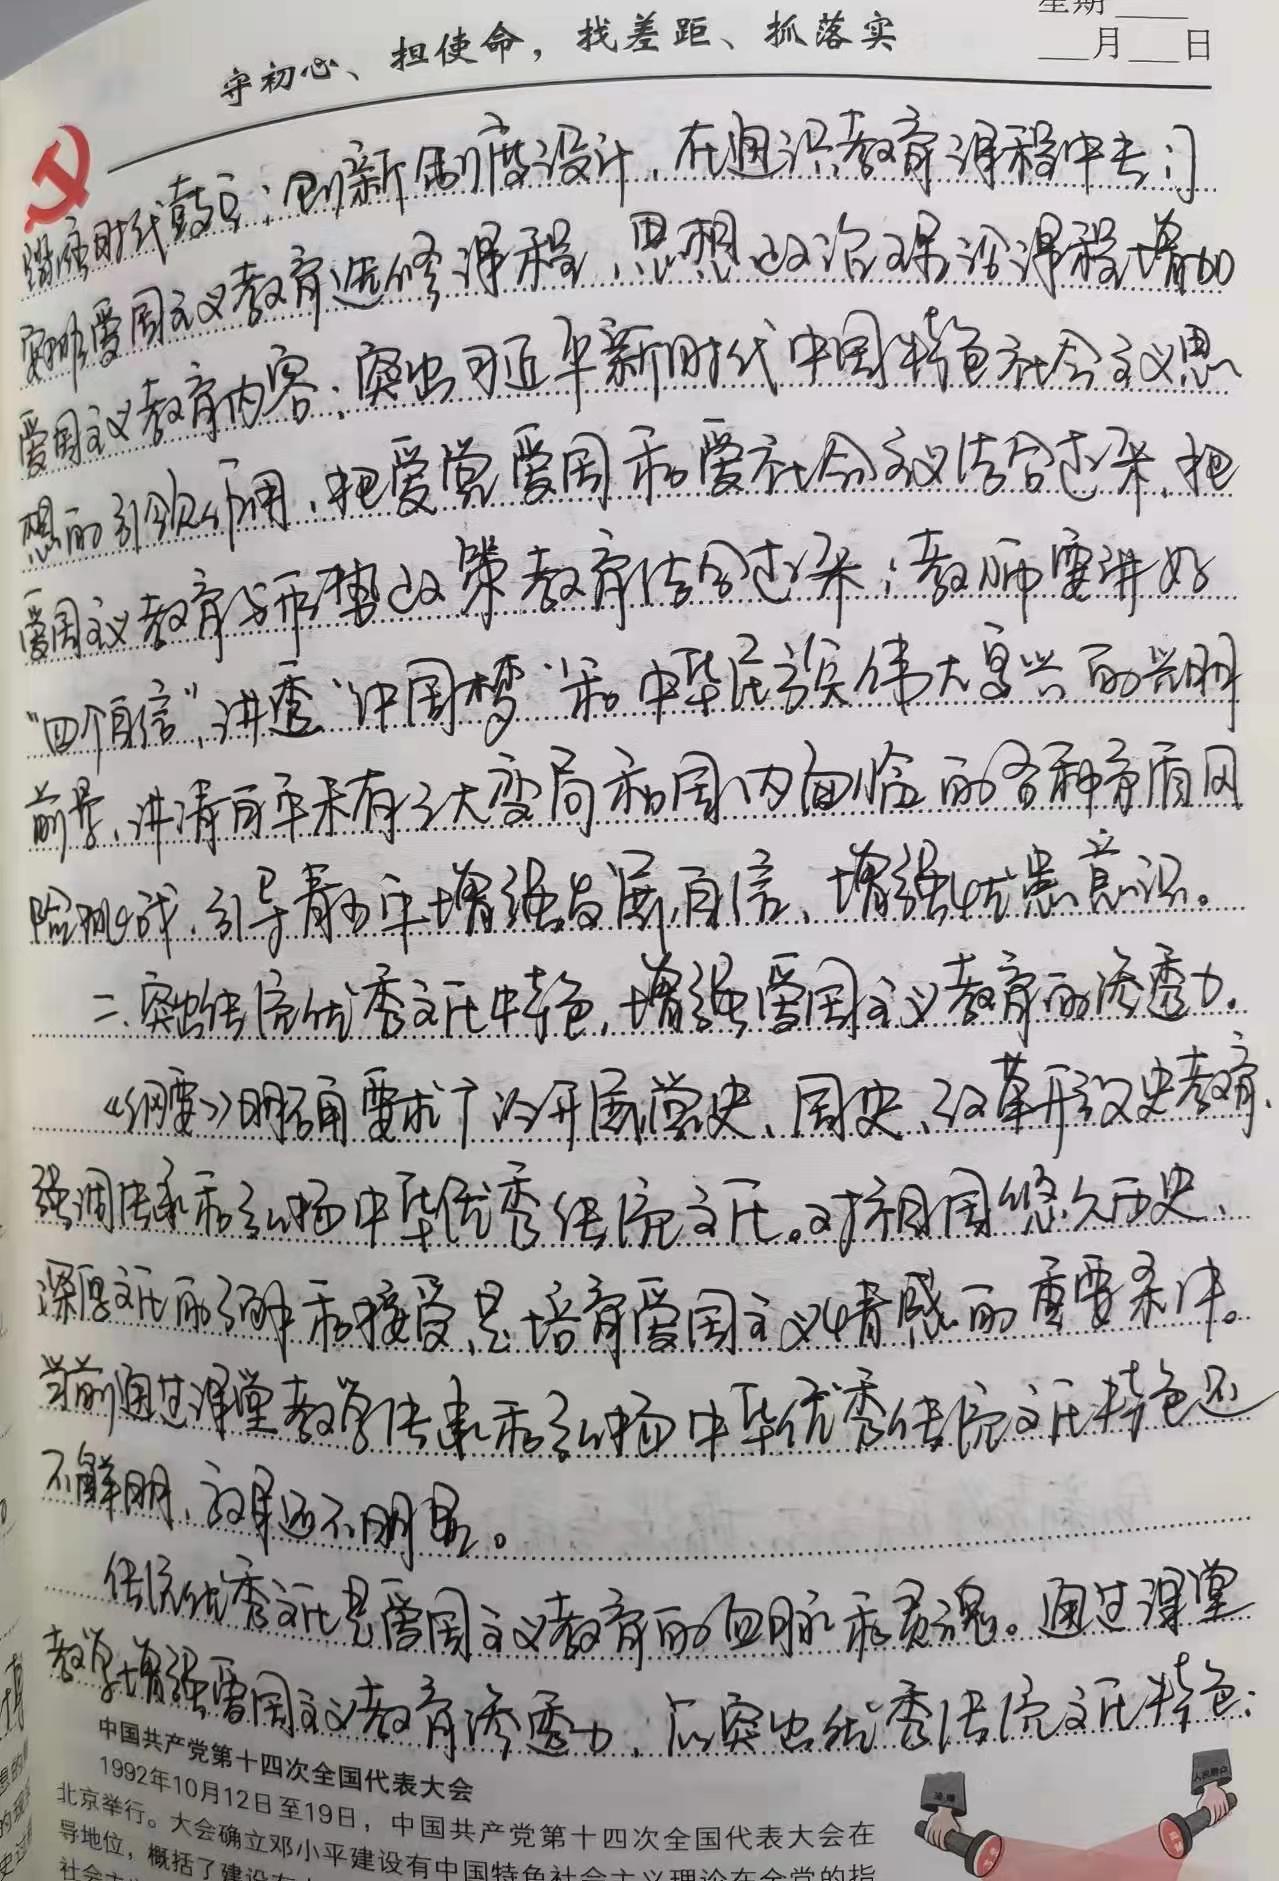 星期
月 日
守初心、担使命，找差距、抓落实
时代鼓点；创新制度设计，在通识教育课程中专门
安排爱国主义教育选修课程，思想政治理论课程增加
爱国主义教育内容；突出习近平新时代中国特色社会主义思
想的引领作用，把爱党爱国和爱社会主义结合起来，把
爱国主义教育与形势政策教育结合起来；教师要讲好
“四个自信”，讲透“中国梦”和中华民族伟大复兴的光明
前景，讲清百年未有之大变局和国内面临的各种矛盾风
险挑战，引导青少年增强发展自信、增强忧患意识。
二、突出传统优秀文化特色，增强爱国主义教育的渗透力。
《纲要》明确要求广泛开展党史、国史、改革开放史教育，
强调传承和弘扬中华优秀传统文化。对祖国悠久历史、
深厚文化的理解和接受，是培育爱国主义情感的重要条件。
当前通过课堂教学传承和弘扬中华优秀传统文化特色还
不鲜明，效果还不明显。
传统优秀文化是爱国主义教育的血脉和灵魂。通过课堂
教学增强爱国主义教育渗透力，应突出优秀传统文化特色：
中国共产党第十四次全国代表大会
1992年10月12日至19日，中国共产党第十四次全国代表大会在
北京举行。大会确立邓小平建设有中国特色社会主义理论在全党的指
导地位，概括了建设有
社会主